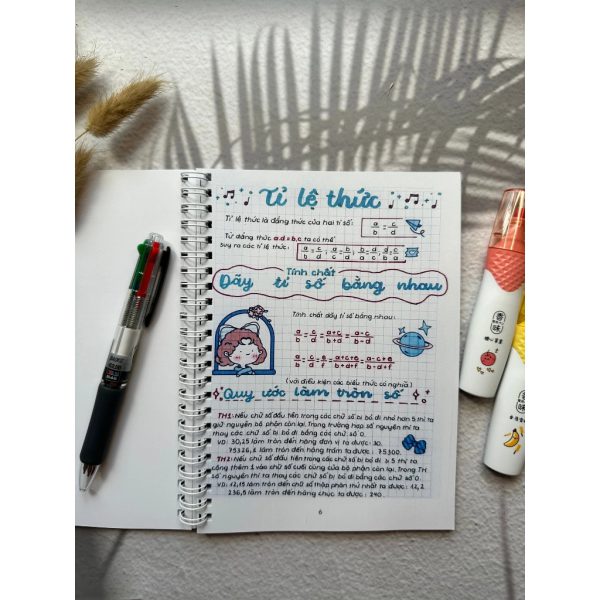 Tỉ lệ thức
Tỉ lệ thức là đẳng thức của hai tỉ số: a/b = c/d
Từ đẳng thức a.d = b.c ta có thể
suy ra các tỉ lệ thức: a/b = c/d ; a/c = b/d ; b/a = d/c ; d/b = c/a
Tính chất
Dãy tỉ số bằng nhau
Tính chất dãy tỉ số bằng nhau:
a/b = c/d = a+c/b+d = a-c/b-d
a/b = c/d = e/f = a+c+e/b+d+f = a-c+e/b-d+f
(với điều kiện các biểu thức có nghĩa)
Quy ước làm tròn số
TH1: Nếu chữ số đầu tiên trong các chữ số bị bỏ đi nhỏ hơn 5 thì ta
giữ nguyên bộ phận còn lại. Trong trường hợp số nguyên thì ta
thay các chữ số bị bỏ đi bằng các chữ số 0.
VD: 30,25 làm tròn đến hàng đơn vị ta được: 30.
75326,8 làm tròn đến hàng trăm ta được: 75300.
TH2: Nếu chữ số đầu tiên trong các chữ số bị bỏ đi ≥ 5 thì ta
cộng thêm 1 vào chữ số cuối cùng của bộ phận còn lại. Trong TH
số nguyên thì ta thay các chữ số bị bỏ đi bằng các chữ số 0.
VD: 12,15 làm tròn đến chữ số thập phân thứ nhất ta được: 12,2
236,5 làm tròn đến hàng chục ta được: 240
6
香
味
香
味